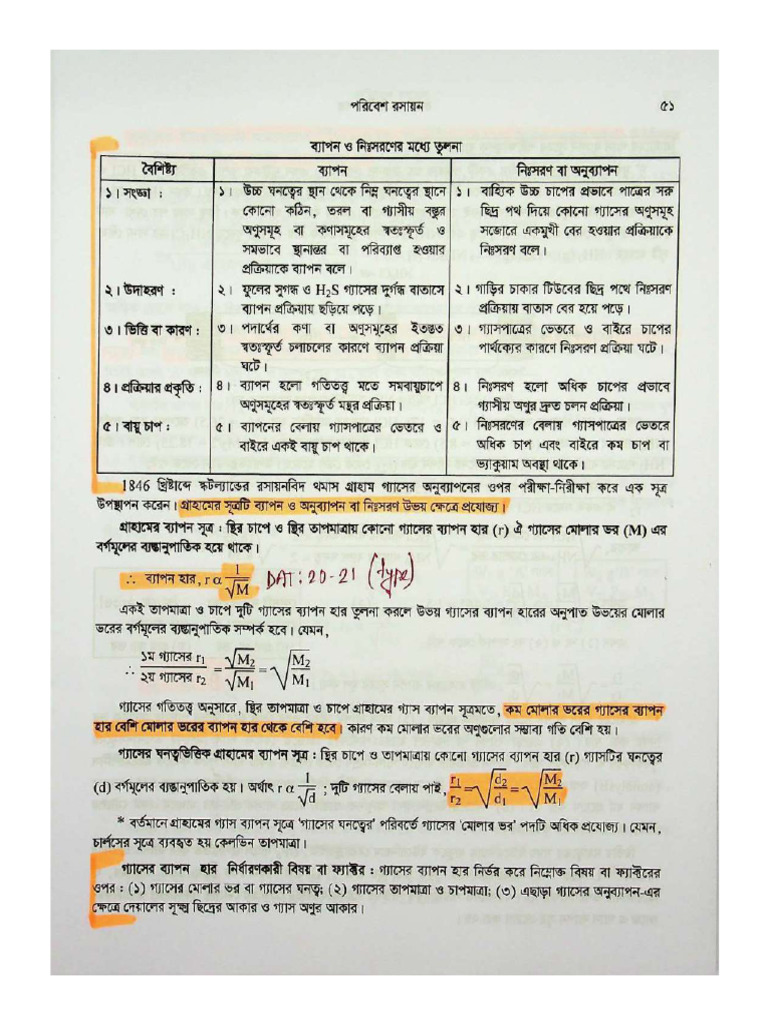 পরিবেশ রসায়ন ৫১
ব্যাপন ও নিঃসরণের মধ্যে তুলনা
বৈশিষ্ট্য ব্যাপন নিঃসরণ বা অনুব্যাপন
১। সংজ্ঞা :
১। উচ্চ ঘনত্বের স্থান থেকে নিম্ন ঘনত্বের স্থানে
কোনো কঠিন, তরল বা গ্যাসীয় বস্তুর
অণুসমূহ বা কণাসমূহের স্বতঃস্ফূর্ত ও
সমভাবে স্থানান্তর বা পরিব্যাপ্ত হওয়ার
প্রক্রিয়াকে ব্যাপন বলে।
১। বাহ্যিক উচ্চ চাপের প্রভাবে পাত্রের সরু
ছিদ্র পথ দিয়ে কোনো গ্যাসের অণুসমূহ
সজোরে একমুখী বের হওয়ার প্রক্রিয়াকে
নিঃসরণ বলে।
২। উদাহরণ :
২। ফুলের সুগন্ধ ও H₂S গ্যাসের দুর্গন্ধ বাতাসে
ব্যাপন প্রক্রিয়ায় ছড়িয়ে পড়ে।
২। গাড়ির চাকার টিউবের ছিদ্র পথে নিঃসরণ
প্রক্রিয়ায় বাতাস বের হয়ে পড়ে।
৩। ভিত্তি বা কারণ :
৩। পদার্থের কণা বা অণুসমূহের ইতস্তত
স্বতঃস্ফূর্ত চলাচলের কারণে ব্যাপন প্রক্রিয়া
ঘটে।
৩। গ্যাসপাত্রের ভেতরে ও বাইরে চাপের
পার্থক্যের কারণে নিঃসরণ প্রক্রিয়া ঘটে।
৪। প্রক্রিয়ার প্রকৃতি :
৪। ব্যাপন হলো গতিতত্ত্ব মতে সমবায়ুচাপে
অণুসমূহের স্বতঃস্ফূর্ত মন্থর প্রক্রিয়া।
৪। নিঃসরণ হলো অধিক চাপের প্রভাবে
গ্যাসীয় অণুর দ্রুত চলন প্রক্রিয়া।
৫। বায়ু চাপ :
৫। ব্যাপনের বেলায় গ্যাসপাত্রের ভেতরে ও
বাইরে একই বায়ু চাপ থাকে।
৫। নিঃসরণের বেলায় গ্যাসপাত্রের ভেতরে
অধিক চাপ এবং বাইরে কম চাপ বা
ভ্যাকুয়াম অবস্থা থাকে।
1846 খ্রিষ্টাব্দে স্কটল্যান্ডের রসায়নবিদ থমাস গ্রাহাম গ্যাসের অনুব্যাপনের ওপর পরীক্ষা-নিরীক্ষা করে এক সূত্র
উপস্থাপন করেন। গ্রাহামের সূত্রটি ব্যাপন ও অনুব্যাপন বা নিঃসরণ উভয় ক্ষেত্রে প্রযোজ্য।
গ্রাহামের ব্যাপন সূত্র : স্থির চাপে ও স্থির তাপমাত্রায় কোনো গ্যাসের ব্যাপন হার (r) ঐ গ্যাসের মোলার ভর (M) এর
বর্গমূলের ব্যস্তানুপাতিক হয়ে থাকে।
∴ ব্যাপন হার, r α 1/√M DAT : 20-21 (type)
একই তাপমাত্রা ও চাপে দুটি গ্যাসের ব্যাপন হার তুলনা করলে উভয় গ্যাসের ব্যাপন হারের অনুপাত উভয়ের মোলার
ভরের বর্গমূলের ব্যস্তানুপাতিক সম্পর্ক হবে। যেমন,
∴ ১ম গ্যাসের r₁/২য় গ্যাসের r₂ = √M₂/√M₁ = √(M₂/M₁)
গ্যাসের গতিতত্ত্ব অনুসারে, স্থির তাপমাত্রা ও চাপে গ্রাহামের গ্যাস ব্যাপন সূত্রমতে, কম মোলার ভরের গ্যাসের ব্যাপন
হার বেশি মোলার ভরের ব্যাপন হার থেকে বেশি হবে। কারণ কম মোলার ভরের অণুগুলোর সম্ভাব্য গতি বেশি হয়।
গ্যাসের ঘনত্বভিত্তিক গ্রাহামের ব্যাপন সূত্র : স্থির চাপে ও তাপমাত্রায় কোনো গ্যাসের ব্যাপন হার (r) গ্যাসটির ঘনত্বের
(d) বর্গমূলের ব্যস্তানুপাতিক হয়। অর্থাৎ r α 1/√d ; দুটি গ্যাসের বেলায় পাই, r₁/r₂ = √(d₂/d₁) = √(M₂/M₁)
* বর্তমানে গ্রাহামের গ্যাস ব্যাপন সূত্রে 'গ্যাসের ঘনত্বের' পরিবর্তে গ্যাসের 'মোলার ভর' পদটি অধিক প্রযোজ্য। যেমন,
চার্লসের সূত্রে ব্যবহৃত হয় কেলভিন তাপমাত্রা।
গ্যাসের ব্যাপন হার নির্ধারণকারী বিষয় বা ফ্যাক্টর : গ্যাসের ব্যাপন হার নির্ভর করে নিম্নোক্ত বিষয় বা ফ্যাক্টরের
ওপর : (১) গ্যাসের মোলার ভর বা গ্যাসের ঘনত্ব; (২) গ্যাসের তাপমাত্রা ও চাপমাত্রা; (৩) এছাড়া গ্যাসের অনুব্যাপন-এর
ক্ষেত্রে দেয়ালের সূক্ষ্ম ছিদ্রের আকার ও গ্যাস অণুর আকার।